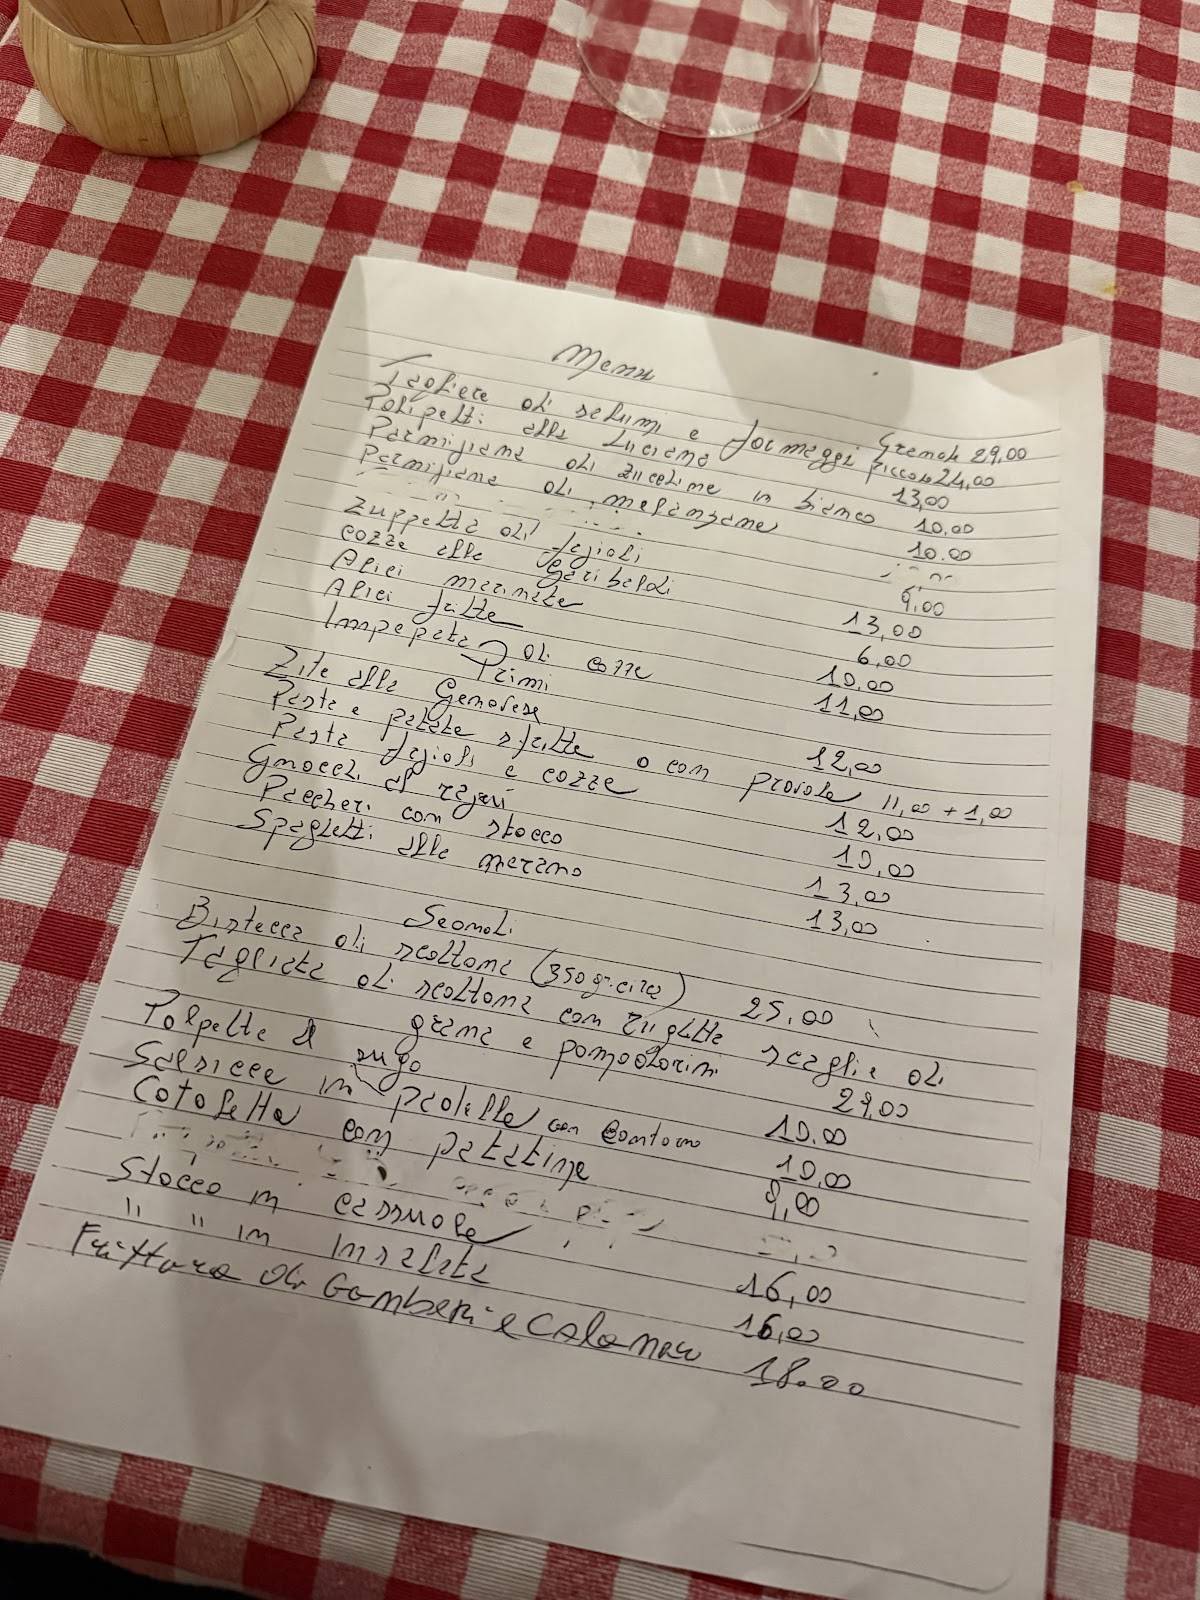 Menu
Tagliere di salumi e formaggi Grande 29,00
piccolo 24,00
Polipetti alla Luciana 13,00
Parmigiana di zucchine in bianco 10.00
Parmigiana di melanzane 10.00
Zuppetta di fagioli 9,00
cozze alla Garibaldi 13,00
Alici marinate 6,00
Alici fritte 10,00
Impepata di cozze 11,00
Primi
Zite alla Genovese 12,00
Pasta e patate sfatte o con provola 11,00 + 1,00
Pasta fagioli e cozze 12.00
Gnocchi al ragù 10,00
Paccheri con stocco 13,00
Spaghetti alla marano 13,00
Secondi
Bistecca di scottona (350 gr. circa) 25,00
Tagliata di scottona con rughetta scaglie di
grana e pomodorini 29,00
Polpette al sugo 10.00
Salsicce in padella con contorno 10,00
Cotoletta con patatine 9,00
Stocco in cassuola 16,00
" " in insalata 16,00
Frittura di Gamberi e Calamari 18.00